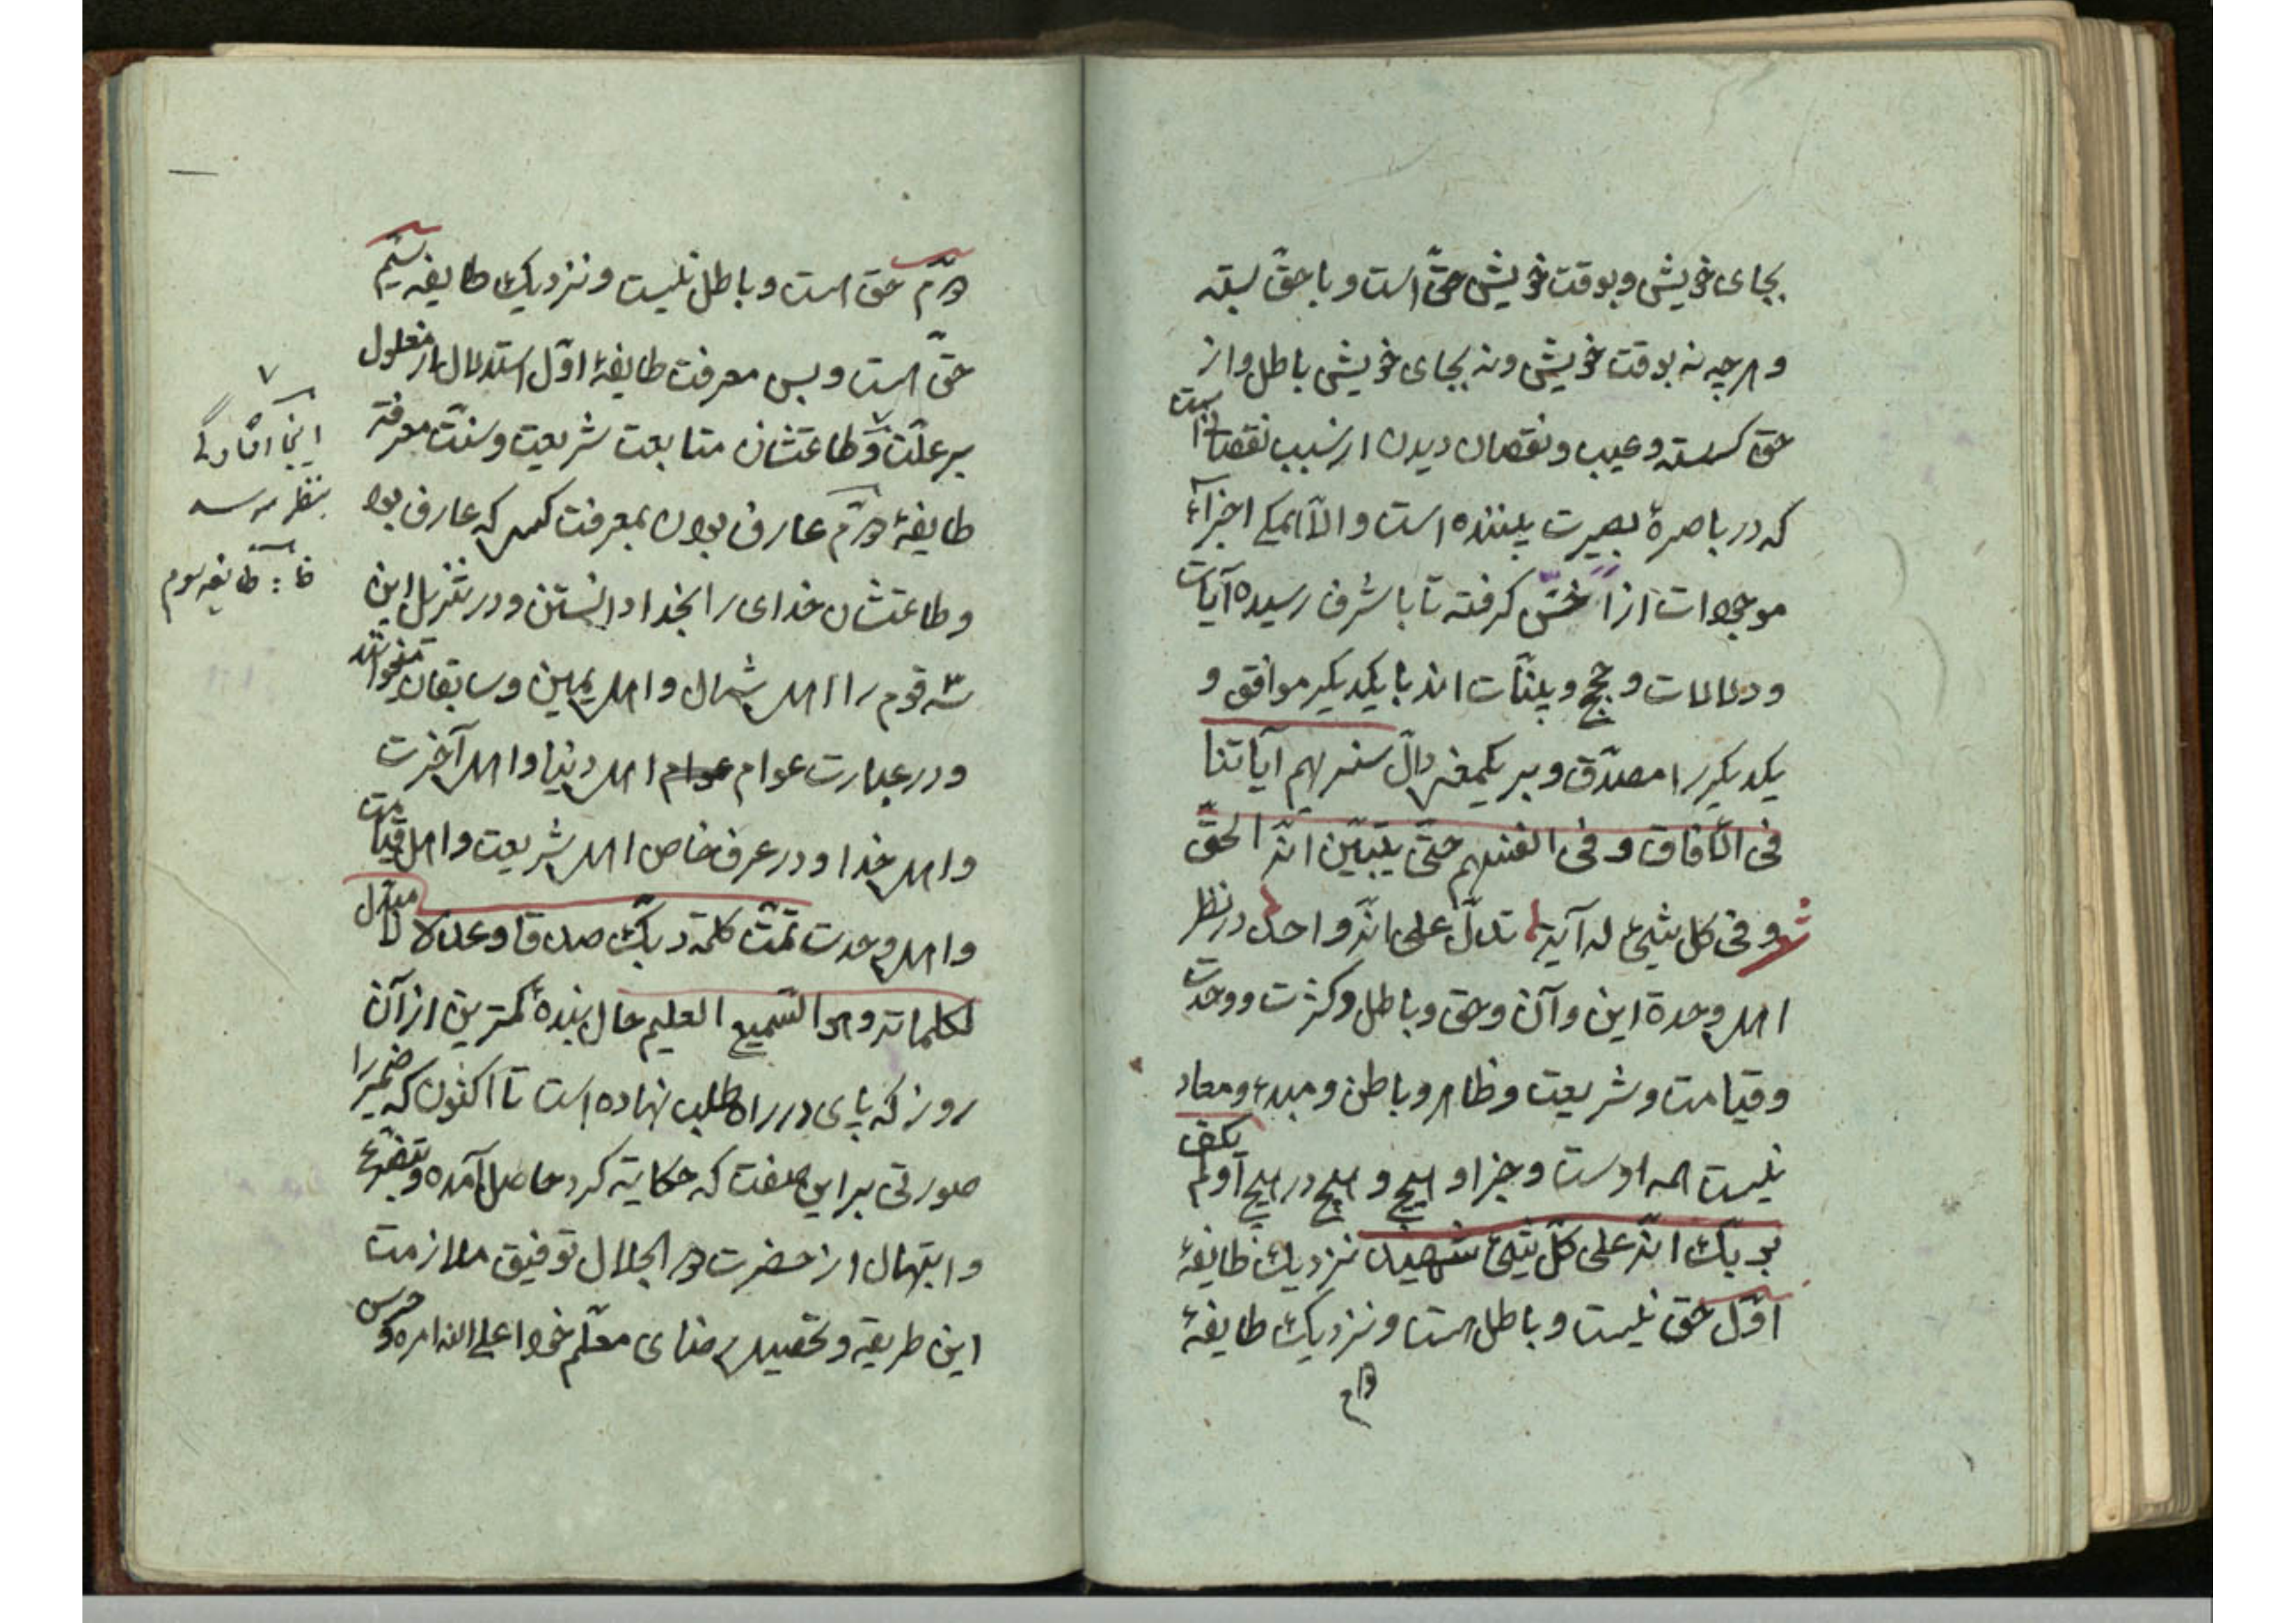 بجای خویش و بوقت خویش حقّ است و با حقّ بسته
و هرچه نه بوقت خویش و نه بجای خویش باطل و از
حق گسسته و عیب و نقصان دیدن از سبب نقصانیست
که در باصرهٔ بصیرت بیننده است و الّا همگی اجزاءِ
موجودات از اخسّ گرفته تا باشرف رسیده آیات
و دلالات و حجج و بینّات اند با یکدیگر موافق و
یکدیگر را مصدّق و بر یکمعنی دالّ سنریهم آیاتنا
فی الآفاق و فی انفسهم حتّی یتبیّن انّه الحقّ
شعر و فی کل شیئ له آیة تدلّ علی انّه واحد در نظر
اهل وحدة این و آن و حق و باطل و کثرت و وحدت
و قیامت و شریعت و ظاهر و باطن و مبدء و معاد
نیست همه اوست و جز او هیچ و هیچ در هیچ أولم یکف
بربّک انّه علی کلّ شیئ شهید نزدیک طایفهٔ
اوّل حق نیست و باطل است و نزدیک طایفهٔ
دوّم
دوّم حق است و باطل نیست و نزدیک طایفه سیّم
حقّ است و بس معرفت طایفهٔ اوّل استدلال از معلول
بر علّت و طاعتشان متابعت شریعت و سنّت معرفة
طایفهٔ دوّم عارف بودن بمعرفت کسی که عارف بود
و طاعتشان خدای را بخدا دانستن و در تنزیل این
سه قوم را اهل شمال و اهل یمین و سابقان میخوانند
و در عبارت عوام عوام اهل دنیا و اهل آخرت
و اهل خدا و در عرف خاص اهل شریعت و اهل قیامت
و اهل وحدت تمّت کلمة ربّک صدقا و عدلا لا مبدّل
لکلماته و هو السّمیع العلیم حال بندهٔ کمترین از آن
روز که پای در راه طلب نهاده است تا اکنون که ضمیر را
صورتی بر این صفت که حکایة کرد حاصل آمده و بتضرّع
و ابتهال از حضرت ذو الجلال توفیق ملازمت
این طریقة و تحصیل رضای معلّم خود اعلی الله امره و حرس
اینجا افتادگی
بنظر میرسد
ظا: طایفه سوم